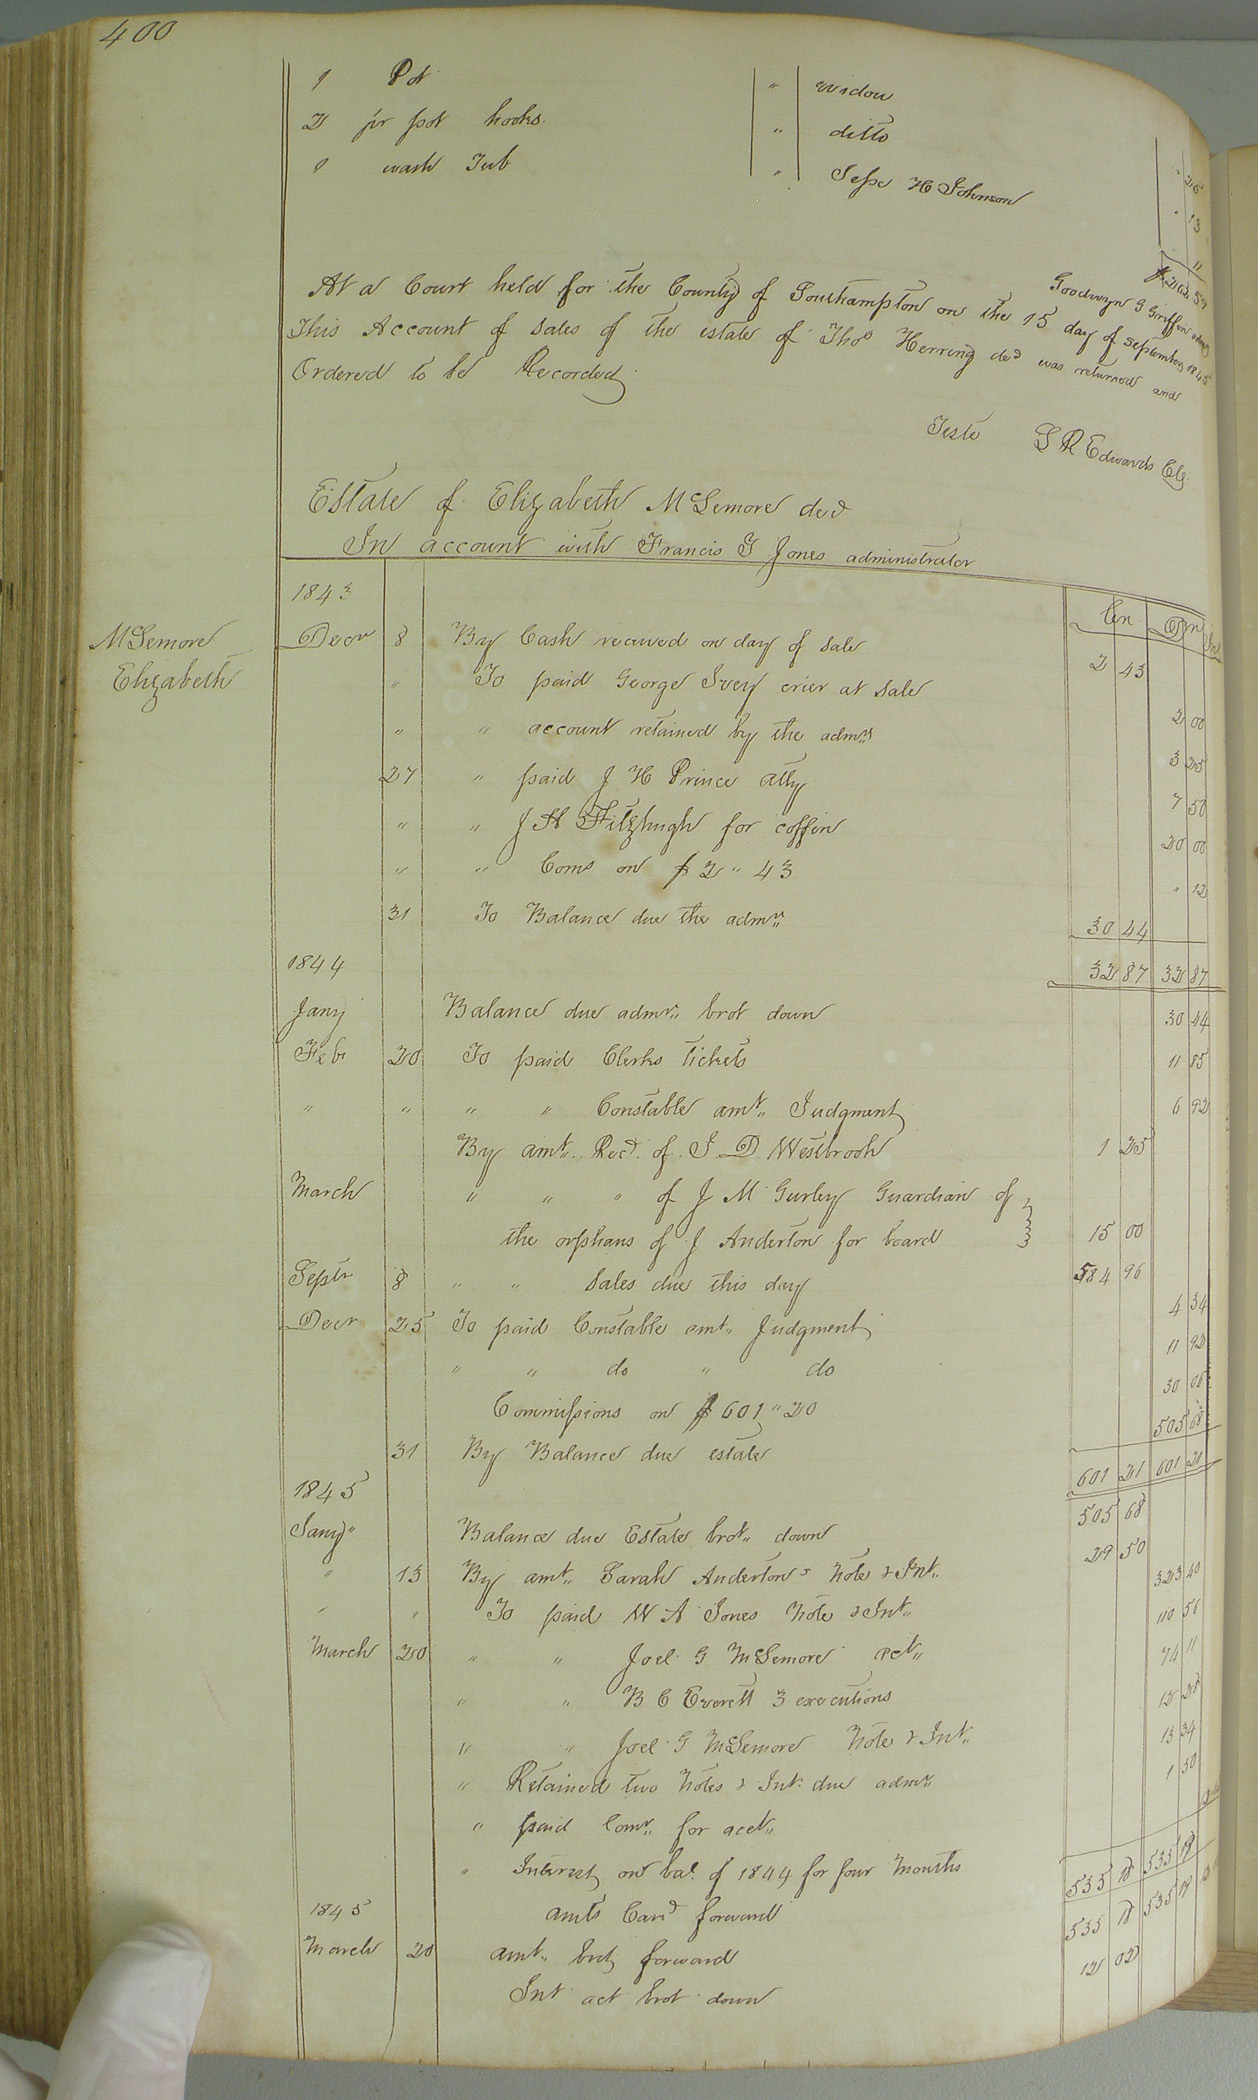 400
1 Pot " widow 25
2 pr pot hooks " ditto 13
1 wash Tub " Jesse H Johnson "
Goodwyn G Griffin adm
At a Court held for the County of Southampton on the 15 day of September 1845
This Account of sales of the estate of Thos Herring decd was returned and
Ordered to be Recorded
Teste L R Edwards Clk
Estate of Elizabeth McLemore decd
In account with Francis J Jones administrator
1843
McLemore
Elizabeth
Decr 8 By Cash received on day of sale 2 43
" To paid George Ivey crier at sale 2 00
" " account retained by the admr 3 25
27 " paid J H Prince atty 7 50
" " J H Fitzhugh for coffin 20 00
" " Coms on $2 " 43 " 12
31 To Balance due the admr 30 44
32 87 32 87
1844
Jany Balance due admr brot down 30 44
Feb 20 To paid Clerks tickets 11 85
" " " " Constable amt Judgment 6 92
By amt Recd of J. D. Westbrook 1 25
March " " " of J M Gurley Guardian of
the orphans of J Anderton for board 15 00
Septr 8 " " Sales due this day 584 96
Decr 25 To paid Constable amt Judgment 4 34
" " do " do 11 92
Commissions on $601 " 20 30 06
31 By Balance due estate 505 68
601 21 601 21
1845
Jany Balance due Estate brot down 505 68
" 13 By amt Sarah Andertons Note & Int 29 50
" " To paid W A Jones Note & Int 323 40
March 20 " " Joel G McLemore act 110 56
" " B C Everett 3 executions 74 11
" " Joel G McLemore Note & Int 12 28
" Retained two Notes & Int due admr 13 34
" paid Comr for acct 1 50
" Interest on bal of 1844 for four Months
amts Card forward 535 18 535 19
1845
March 20 amt brot forward 535 18 535 19
Int act brot down 12 02